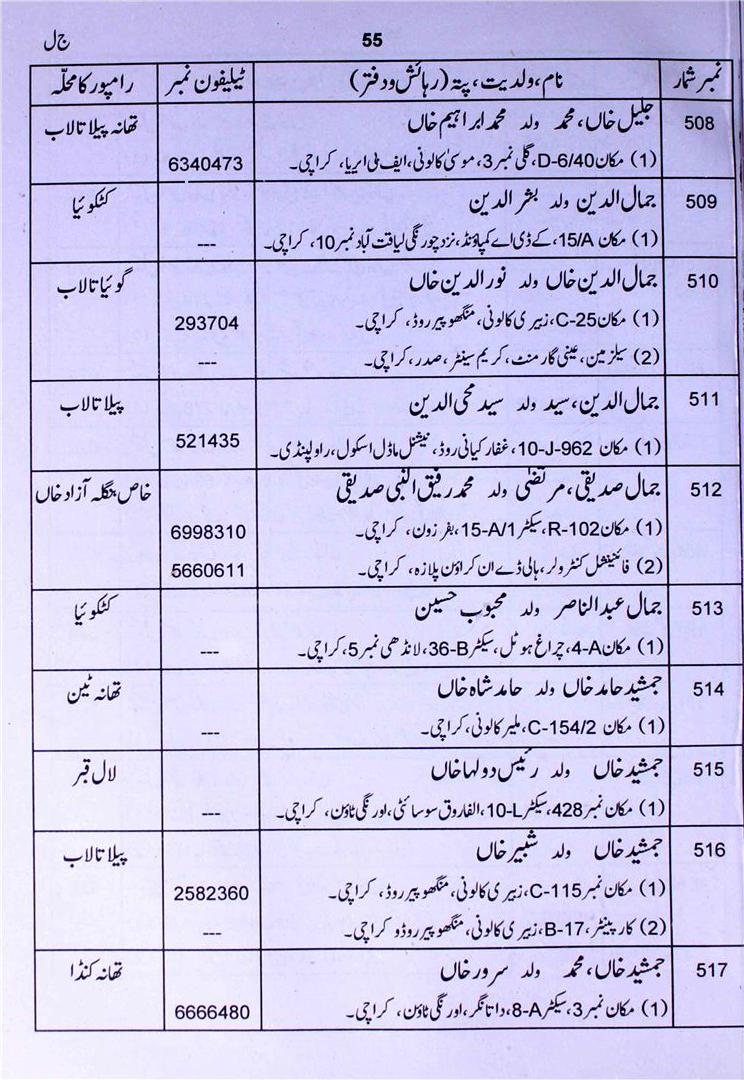 ج ل 55
نمبر شمار نام، ولدیت، پتہ (رہائش و دفتر) ٹیلیفون نمبر رامپور کا محلّہ
508 جلیل خاں، محمد ولد محمد ابراہیم خاں تھانہ پیلا تالاب
(1) مکان D-6/40، گلی نمبر 3، موسیٰ کالونی، ایف ٹی ایریا، کراچی۔ 6340473
509 جمال الدین ولد بشر الدین کٹکوئیا
(1) مکان 15/A، کے ڈی اے کمپاؤنڈ، نزد چورنگی لیاقت آباد نمبر 10، کراچی۔ ---
510 جمال الدین خاں ولد نور الدین خاں گوئیا تالاب
(1) مکان C-25، زبیری کالونی، منگھو پیر روڈ، کراچی۔ 293704
(2) سیلز مین، عینی گارمنٹ، کریم سینٹر، صدر، کراچی۔ ---
511 جمال الدین، سید ولد سید محی الدین پیلا تالاب
(1) مکان 10-J-962، غفار کیانی روڈ، نیشنل ماڈل اسکول، راولپنڈی۔ 521435
512 جمال صدیقی، مرتضیٰ ولد محمد رفیق النبی صدیقی خاص بنگلہ آزاد خاں
(1) مکان R-102، سیکٹر 15-A/1، بفر زون، کراچی۔ 6998310
(2) فائنینشل کنٹرولر، ہالی ڈے ان کراؤن پلازہ، کراچی۔ 5660611
513 جمال عبدالناصر ولد محبوب حسین کٹکوئیا
(1) مکان 4-A، چراغ ہوٹل، سیکٹر 36-B، لانڈھی نمبر 5، کراچی۔ ---
514 جمشید حامد خاں ولد حامد شاہ خاں تھانہ ٹین
(1) مکان C-154/2، ملیر کالونی، کراچی۔ ---
515 جمشید خاں ولد رئیس دولہا خاں لال قبر
(1) مکان نمبر 428، سیکٹر 10-L، الفاروق سوسائٹی، اورنگی ٹاؤن، کراچی۔ ---
516 جمشید خاں ولد شبیر خاں پیلا تالاب
(1) مکان نمبر C-115، زبیری کالونی، منگھو پیر روڈ، کراچی۔ 2582360
(2) کارپینٹر، B-17، زبیری کالونی، منگھو پیر روڈ و کراچی۔ ---
517 جمشید خاں، محمد ولد سرور خاں تھانہ کنڈا
(1) مکان نمبر 3، سیکٹر 8-A، داتا نگر، اورنگی ٹاؤن، کراچی۔ 6666480